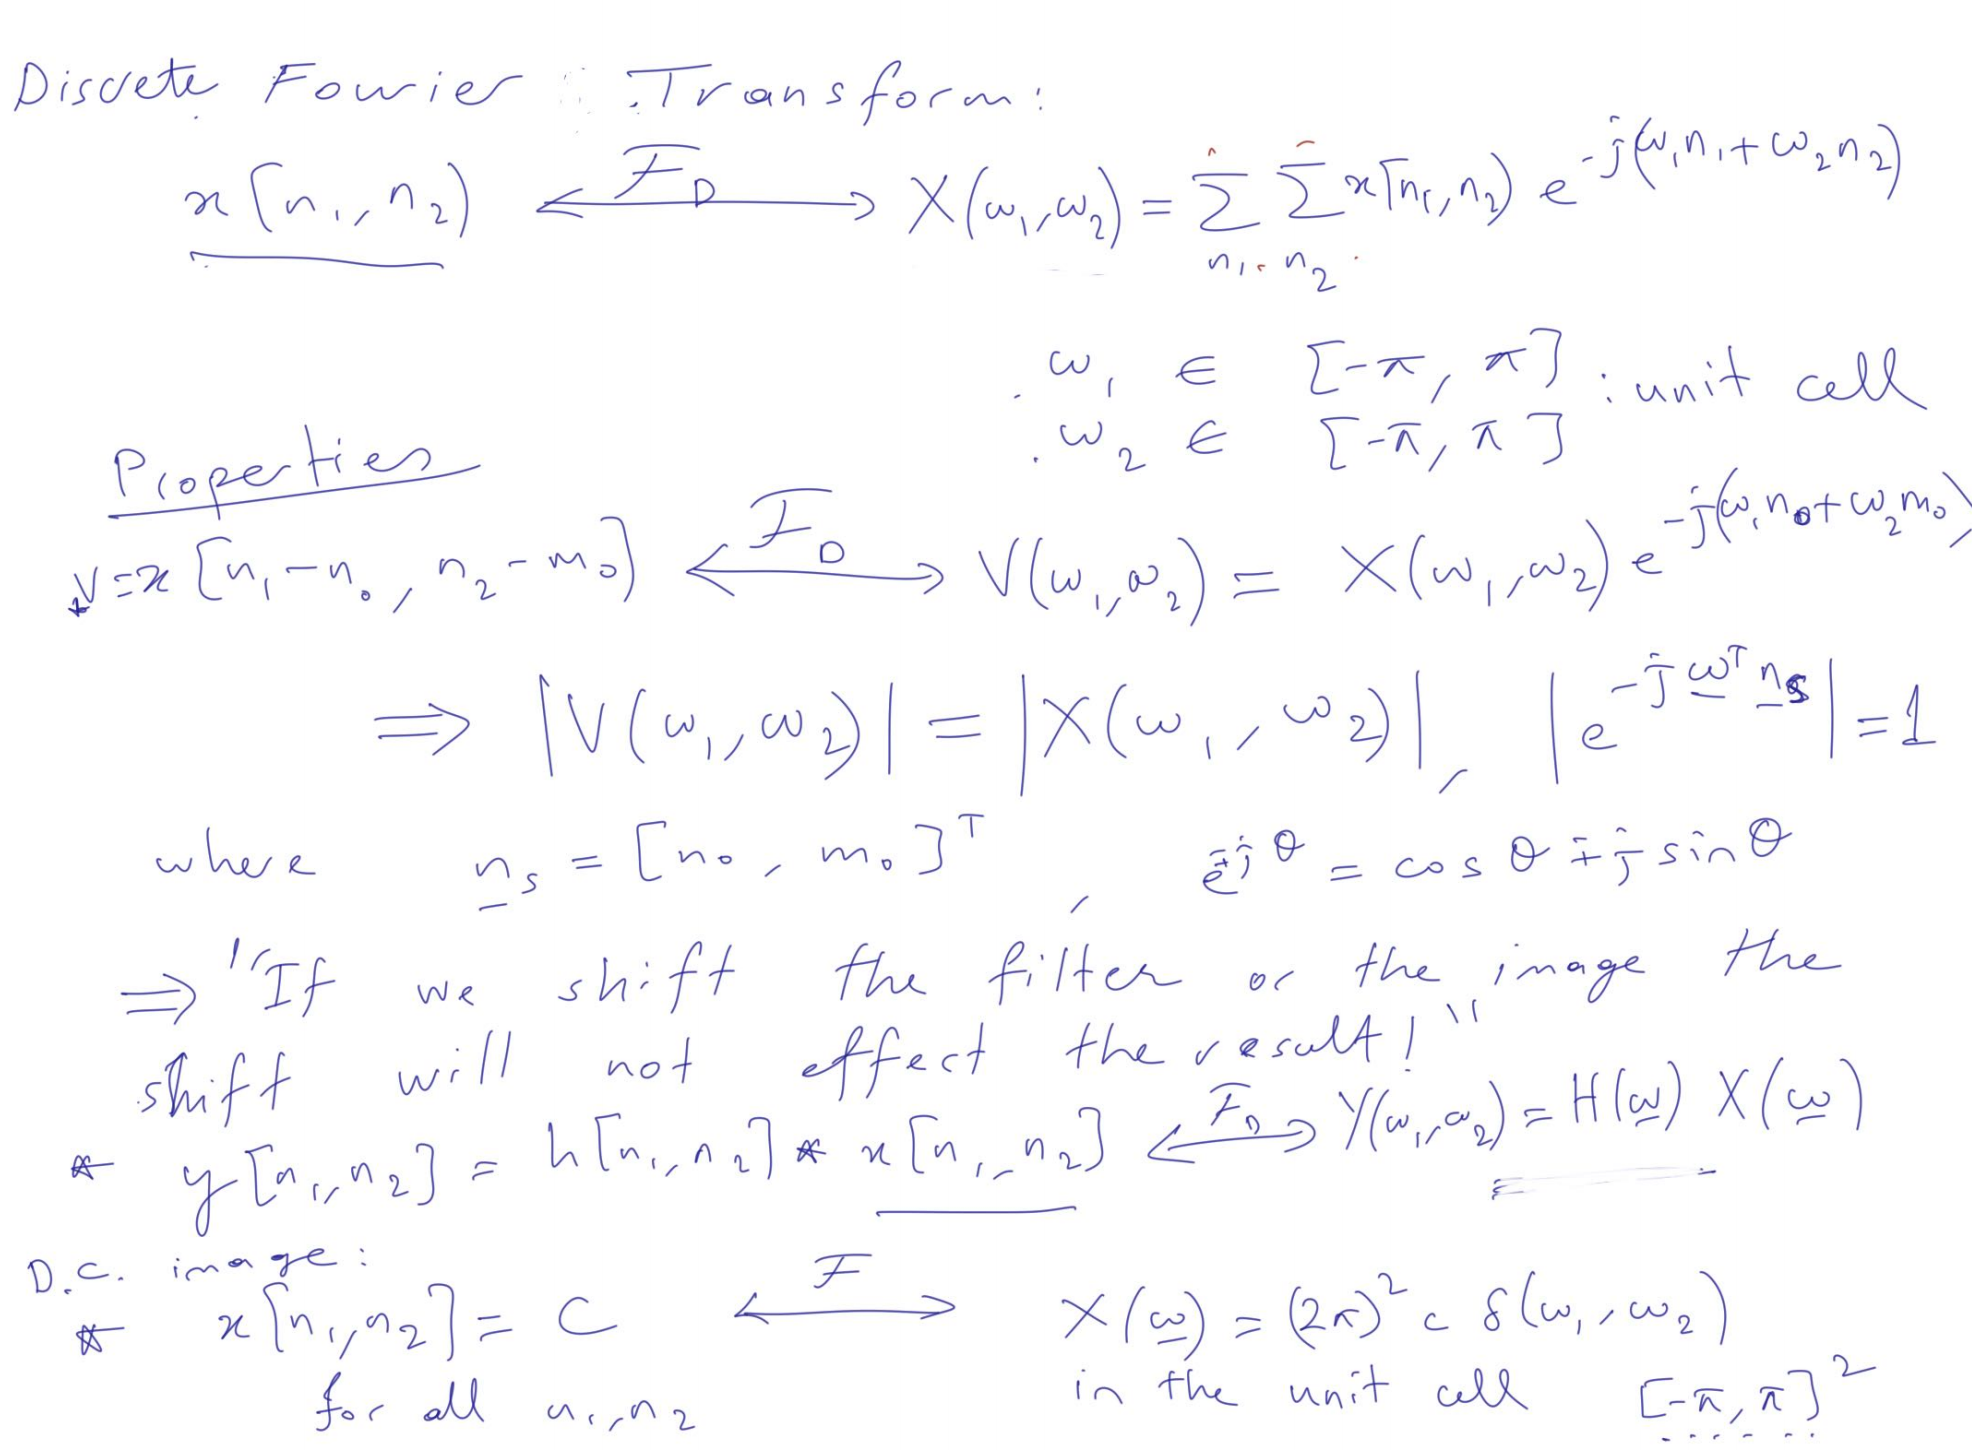 Discrete Fourier Transform:
x[n₁, n₂) ⟷ F_D X(ω₁, ω₂) = Σ_{n₁} Σ_{n₂} x[n₁, n₂) e^{-j(ω₁n₁ + ω₂n₂)}
ω₁ ∈ [-π, π] : unit cell
ω₂ ∈ [-π, π]
Properties
V = x[n₁-n₀, n₂-m₀] ⟷ F_D V(ω₁, ω₂) = X(ω₁, ω₂) e^{-j(ω₁n₀ + ω₂m₀)}
⇒ |V(ω₁, ω₂)| = |X(ω₁, ω₂)|, |e^{-j ω^T n_s}| = 1
where n_s = [n₀, m₀]^T, e^{∓jθ} = cos θ ∓ j sin θ
⇒ "If we shift the filter or the image the
shift will not effect the result!"
* y[n₁, n₂] = h[n₁, n₂] * x[n₁, n₂] ⟷ F_D Y(ω₁, ω₂) = H(ω) X(ω)
D.C. image:
* x[n₁, n₂] = C ⟷ F X(ω) = (2π)² c δ(ω₁, ω₂)
for all n₁, n₂ in the unit cell [-π, π]²